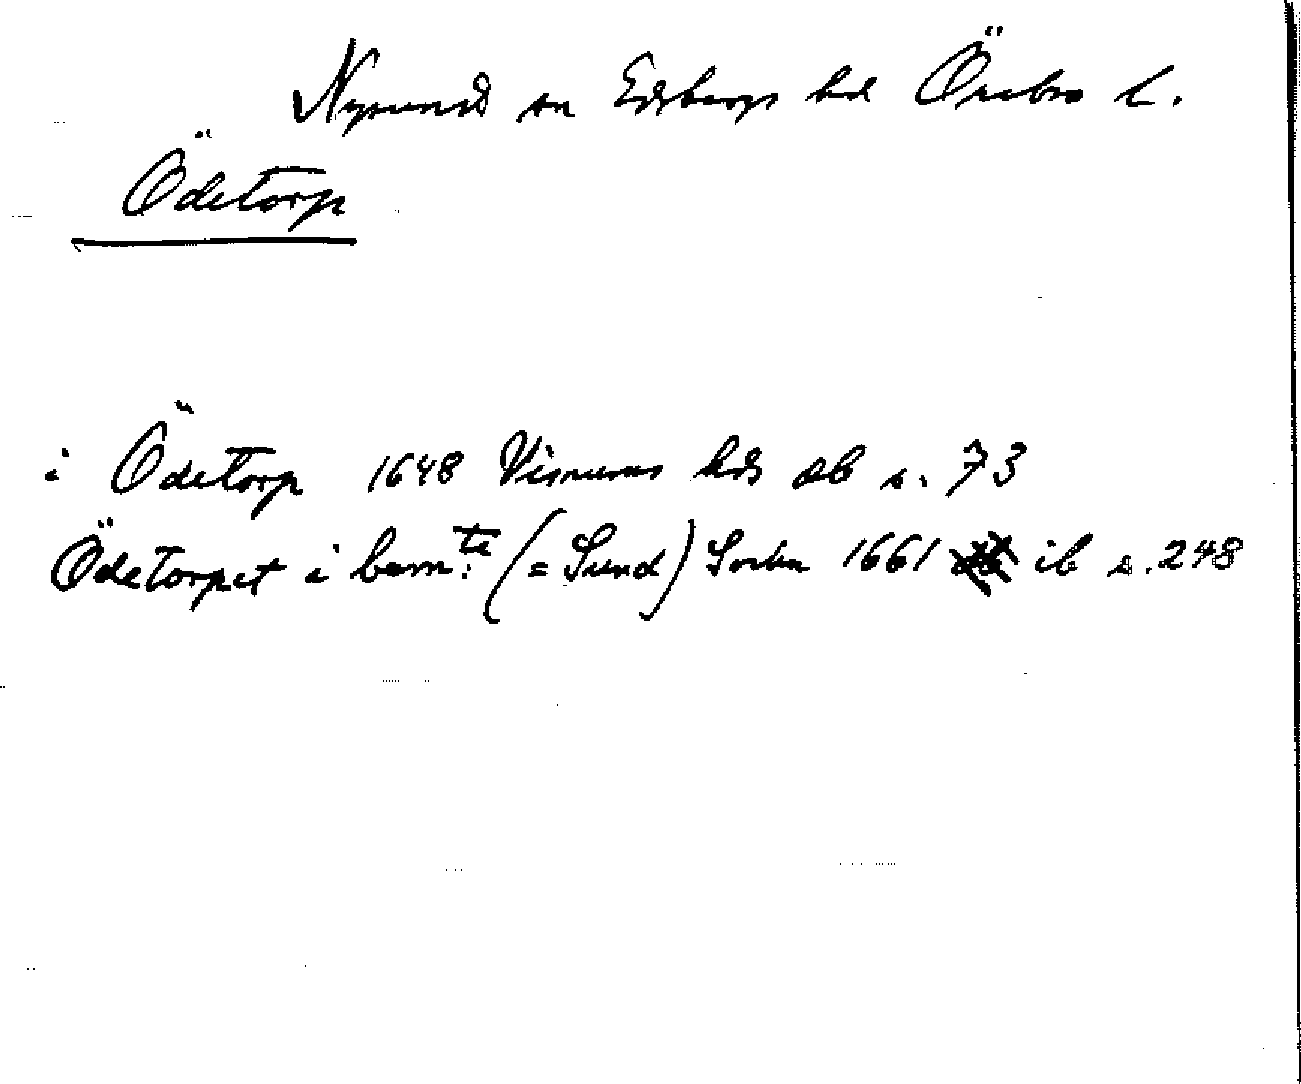 Nysund sn Edsbergs hd Örebro l.
Ödetorp
i Ödetorp 1648 Visnums hds db s. 73
Ödetorpet i bem:te (= Sund) Sockn 1661 ib s. 248